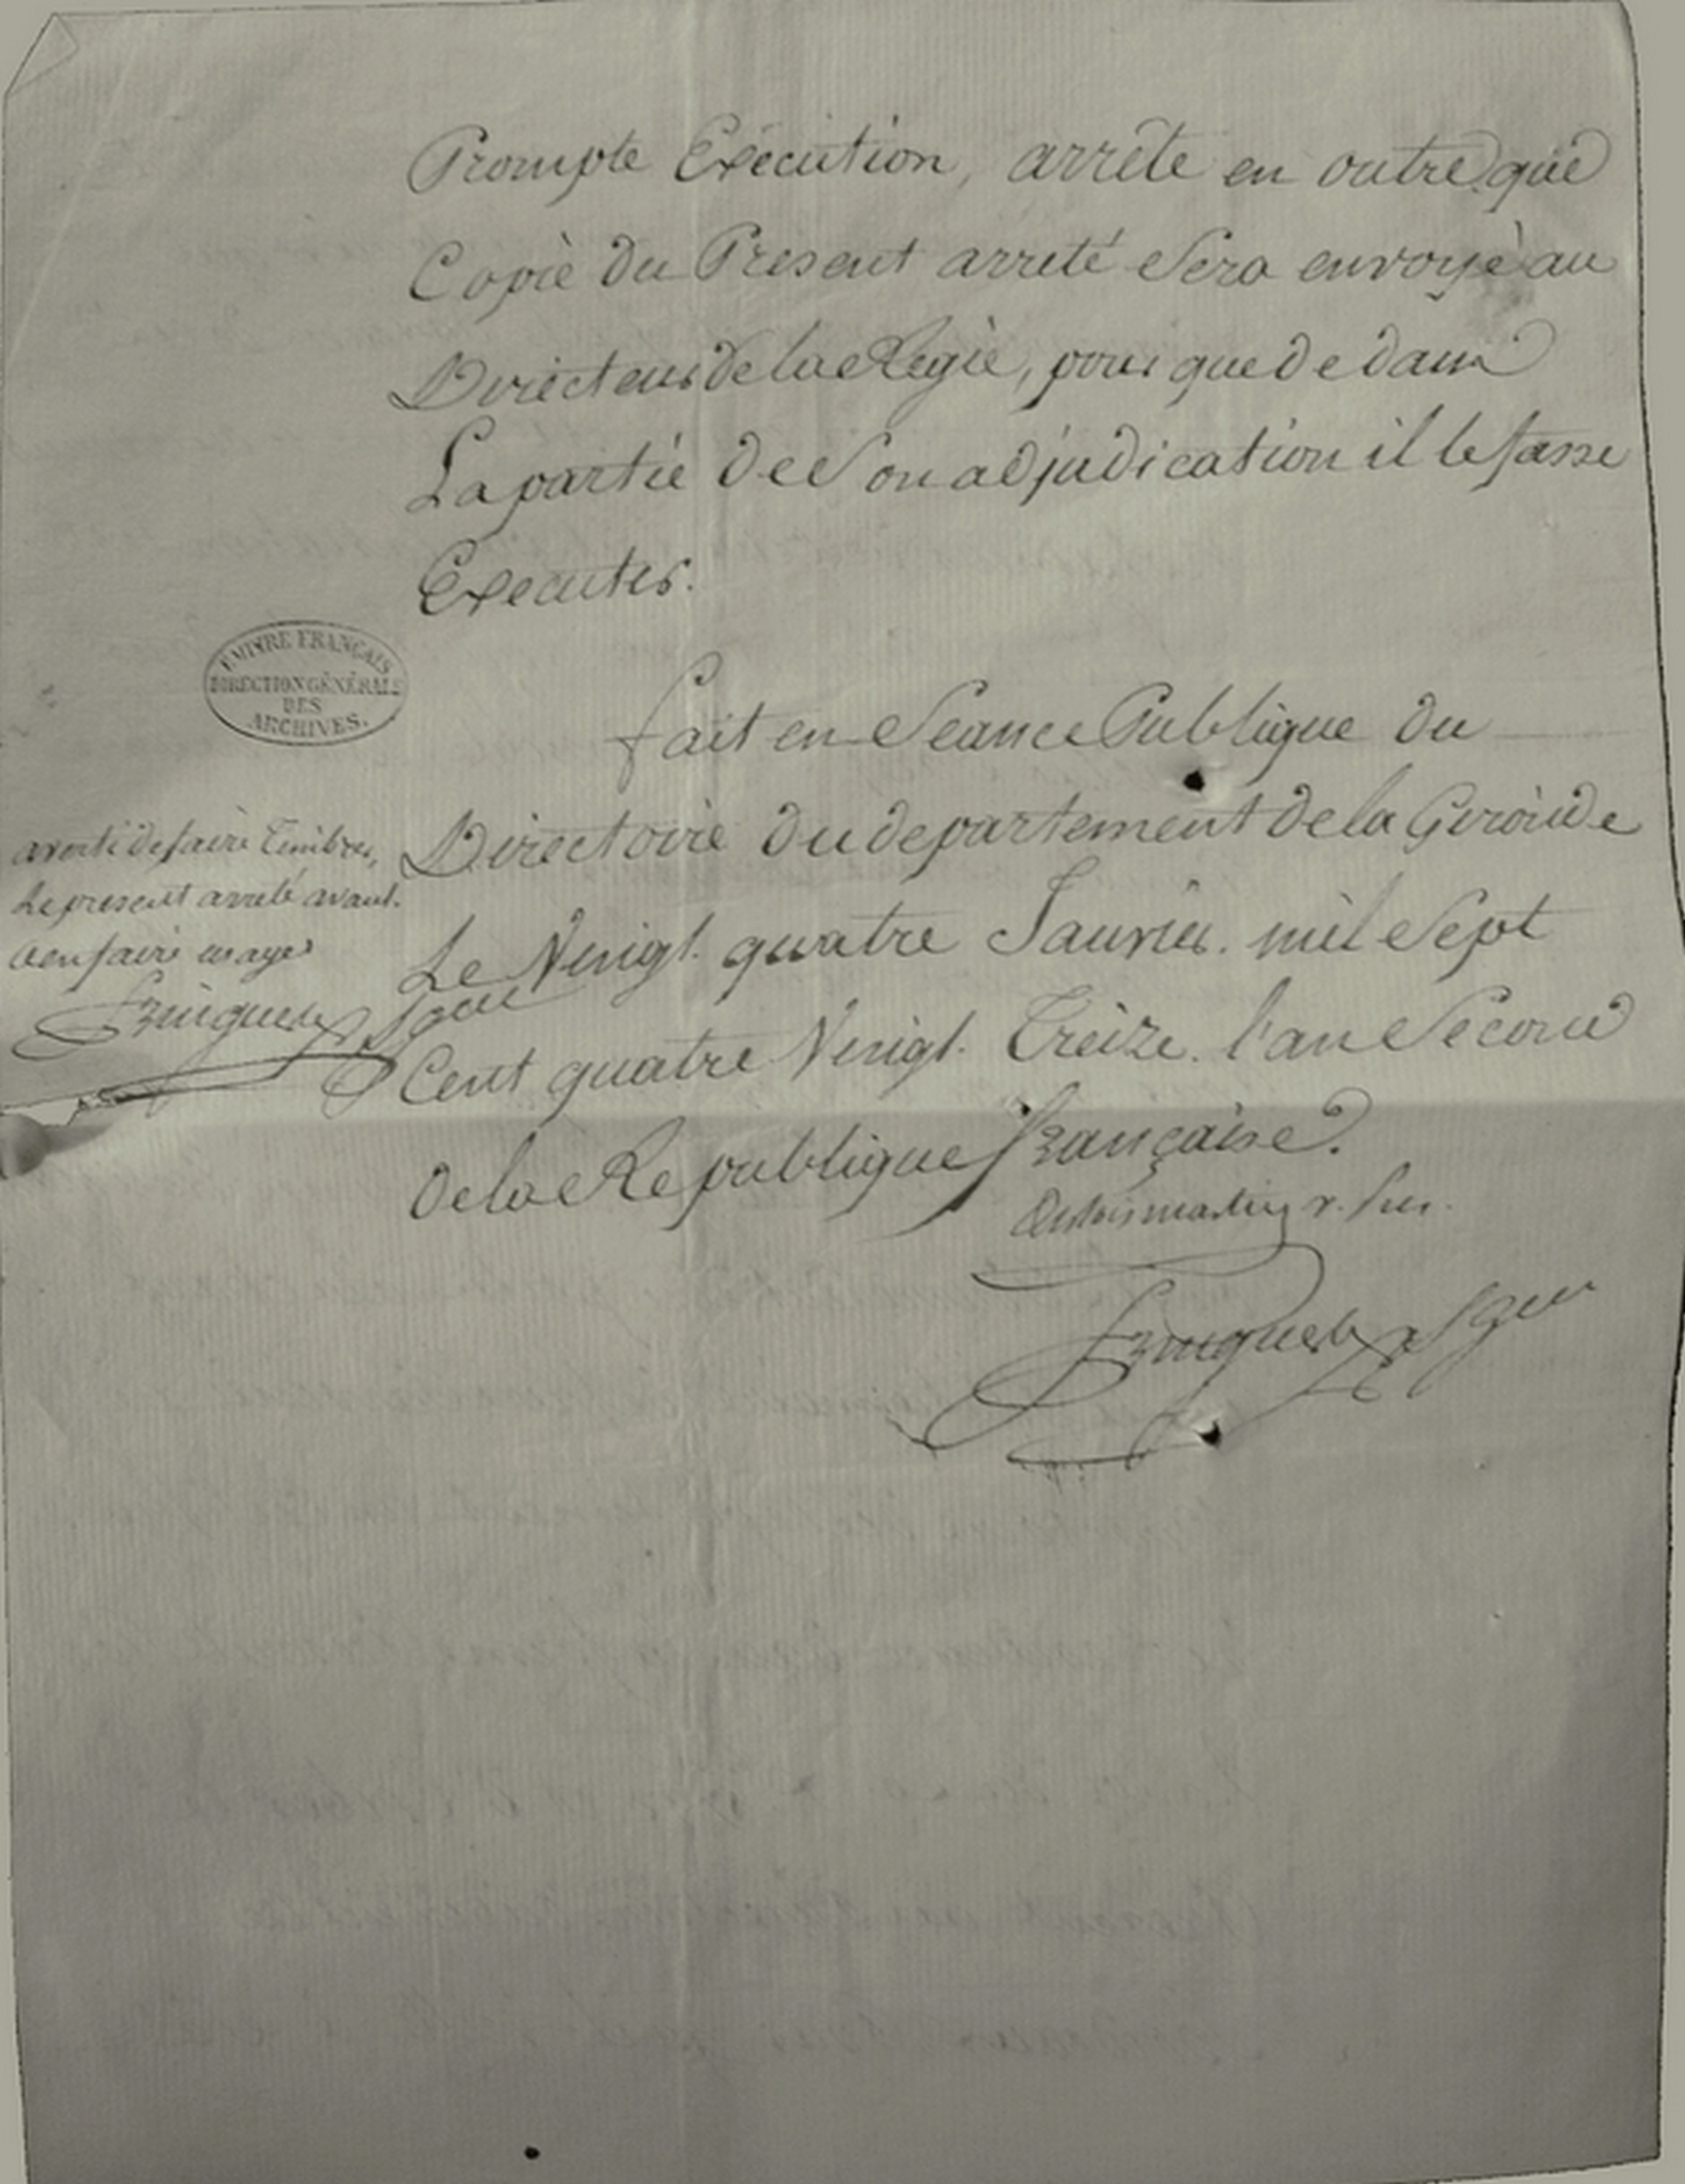 Prompte Exécution, arrête en outre que
Copie du Present arreté Sera envoyé au
Directeur de la Regie, pour que de dans
La partie de Son adjudication il le fasse
Executer.
EMPIRE FRANÇAIS
DIRECTION GÉNÉRALE
DES
ARCHIVES.
fait en Seance Publique du
Directoire du departement de la Gironde
Le Vingt quatre Janvier mil Sept
Cent quatre Vingt Treize. l'an Second
de la Republique française.
averti de faire Timbrer,
Le present arreté avant
d'en faire usage